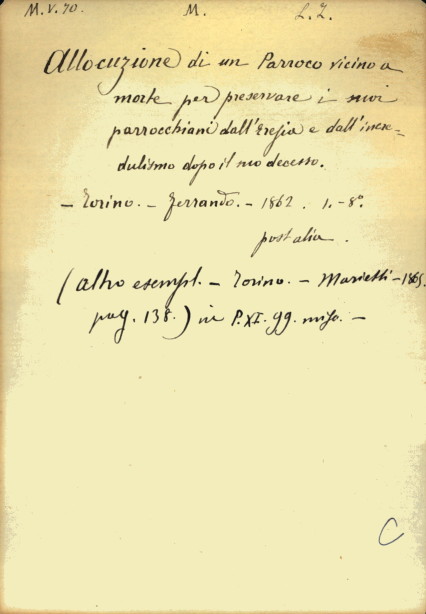 M.V.70. M. L.Z.
Allocuzione di un Parroco vicino a
morte per preservare i suoi
parrocchiani dall'Eresia e dall'incre=
dulismo dopo il suo decesso.
- Torino. - Ferrando. - 1862. 1.-8°.
post alia.
(altro esempl. - Torino. - Marietti - 1865.
pag. 138.) in P.XI.99. miso. -
C